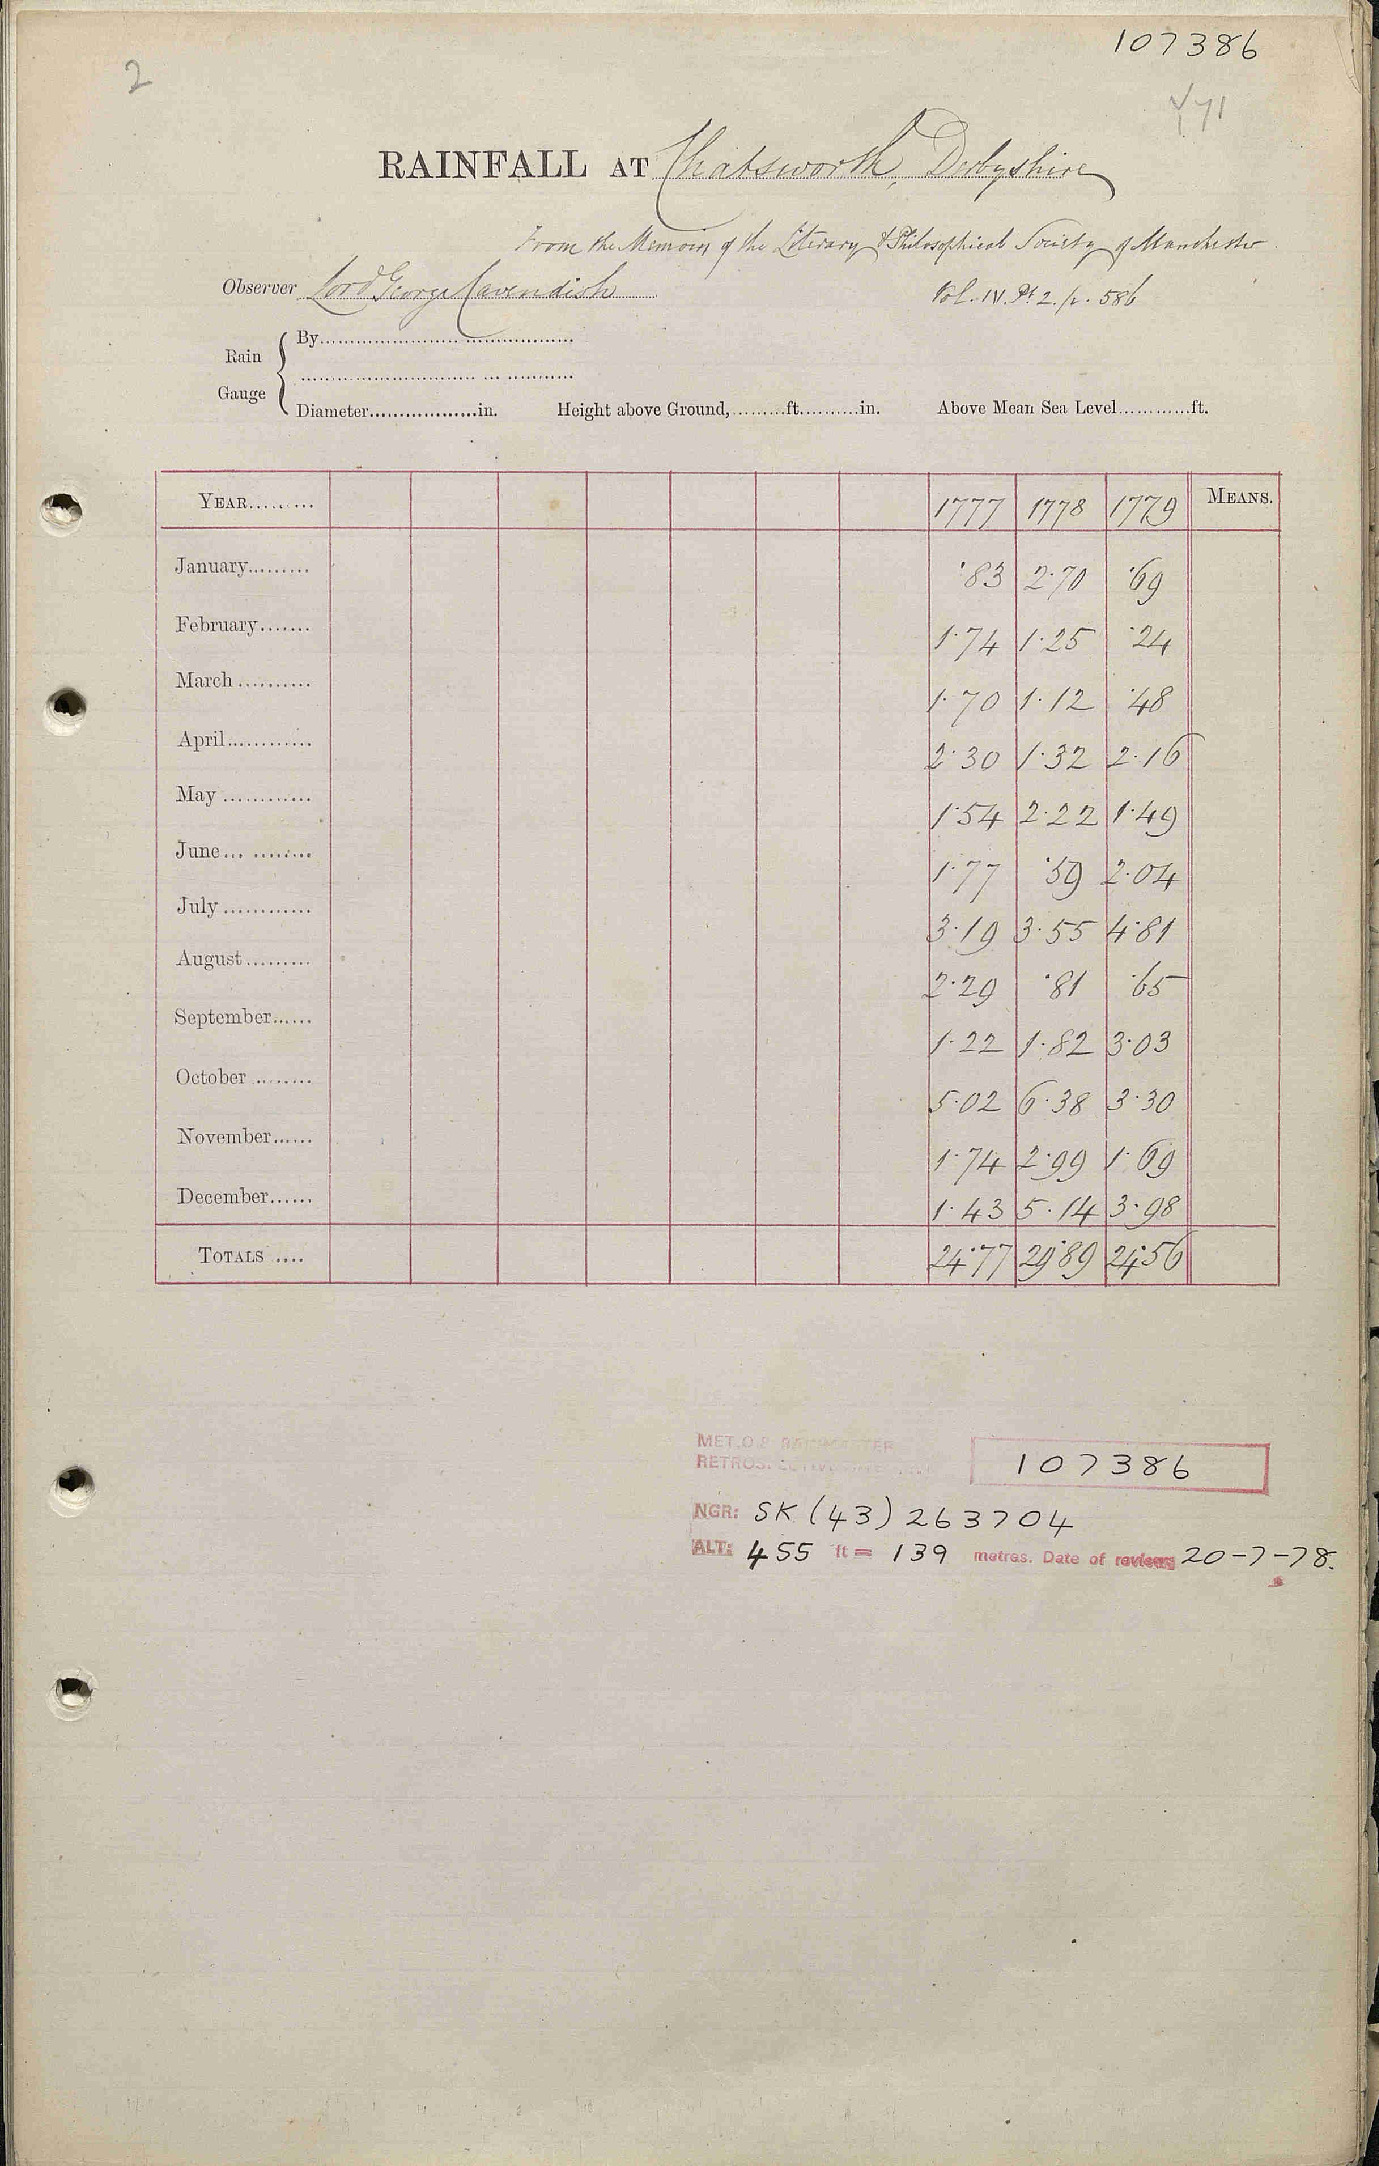 107386
2
√71
RAINFALL AT Chatsworth, Derbyshire
From the Memoirs of the Literary & Philosophical Society of Manchester
Observer Lord George Cavendish
Vol. IV. Pt 2. p. 586
Rain Gauge
By
Diameter in. Height above Ground, ft. in. Above Mean Sea Level ft.
YEAR 1777 1778 1779 MEANS.
January ·83 2·70 ·69
February 1·74 1·25 ·24
March 1·70 1·12 ·48
April 2·30 1·32 2·16
May 1·54 2·22 1·49
June 1·77 ·59 2·04
July 3·19 3·55 4·81
August 2·29 ·81 ·65
September 1·22 1·82 3·03
October 5·02 6·38 3·30
November 1·74 2·99 1·69
December 1·43 5·14 3·98
TOTALS 24·77 29·89 24·56
MET.O.8 RAINMASTER
RETROS. 107386
NGR: SK (43) 263704
ALT: 455 ft = 139 metres. Date of review 20-7-78.